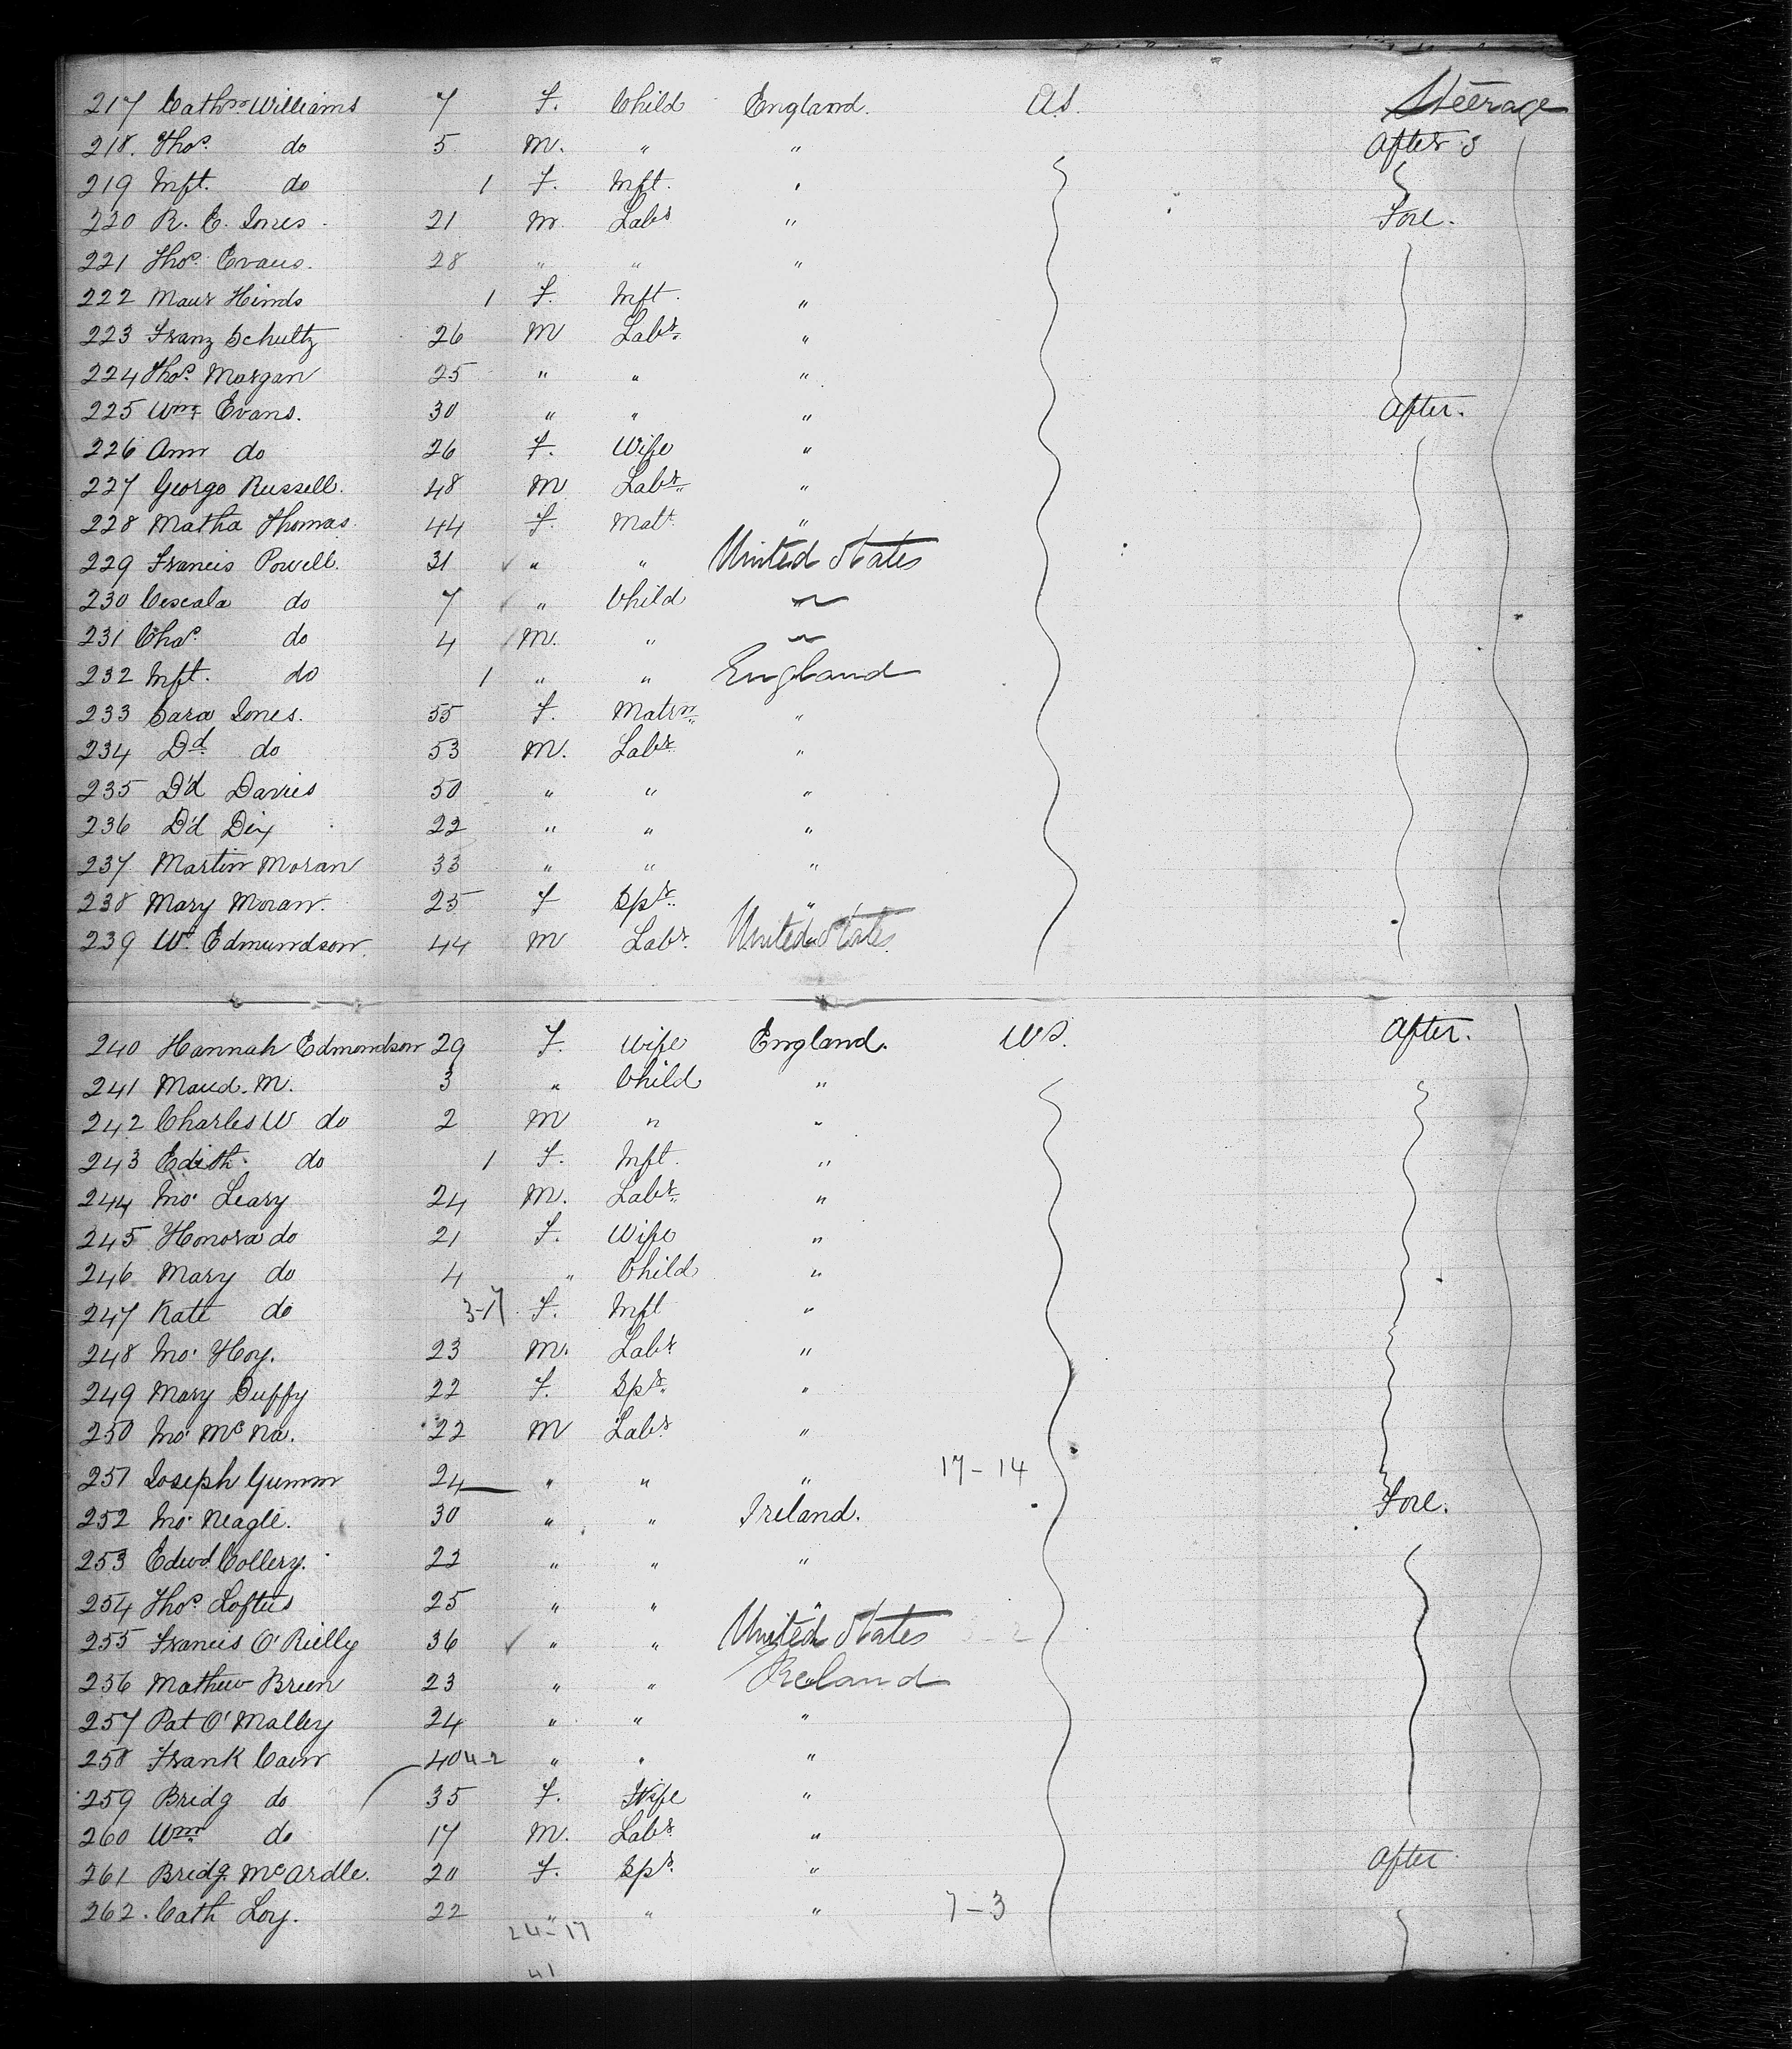 217 Cathne Williams 7 F. Child England. U.S. Steerage
218. Thos. do 5 M. " " After S
219 Inft. do 1 F. Inft. "
220 R. E. Jones 21 M Labr " Fore.
221 Thos. Evans. 28 " " "
222 Maur Hinds 1 F. Inft. "
223 Franz Schultz 26 M Labr. "
224 Thos. Morgan 25 " " "
225 Wm. Evans. 30 " " " After.
226 Ann do 26 F. Wife "
227 George Russell. 48 M Labr. "
228 Matha Thomas. 44 F. Mat "
229 Francis Powell. 31 " " United States
230 Cescala do 7 " Child "
231 Chas. do 4 M. " "
232 Inft. do 1 " " England
233 Sara Jones. 55 F. Matrn "
234 Dd. do 53 M. Labr. "
235 D'd Davies 50 " " "
236 D'd Dix 22 " " "
237 Martin Moran 33 " " "
238 Mary Moran. 25 F Spr. "
239 Wm. Edmundson. 44 M Labr. United States
240 Hannah Edmondson 29 F. Wife England. U.S. After.
241 Maud. M. 3 " Child "
242 Charles W do 2 M " "
243 Edith. do 1 F. Inft. "
244 Jno. Leary 24 M. Labr. "
245 Honora do 21 F. Wife "
246 Mary do 4 " Child "
247 Kate do 3-17 F. Inft "
248 Jno. Hoy. 23 M. Labr. "
249 Mary Duffy 22 F. Spr. "
250 Jno. McNa. 22 M Labr. "
251 Joseph Gumm 24 " " " 17-14
252 Jno. Neagle. 30 " " Ireland. Fore.
253 Edwd. Collery. 22 " " "
254 Thos. Loftus 25 " " "
255 Francis O'Rielly 36 " " United States
236 Mathew Breen 23 " " Ireland
257 Pat O'Malley 24 " " "
258 Frank Cain 40 4-2 " " "
259 Bridg do 35 F. Wife "
260 Wm do 17 M. Labr. "
261 Bridg. McArdle. 20 F. Spr. " After
262. Cath Loy. 22 " " " 7-3
24-17
41